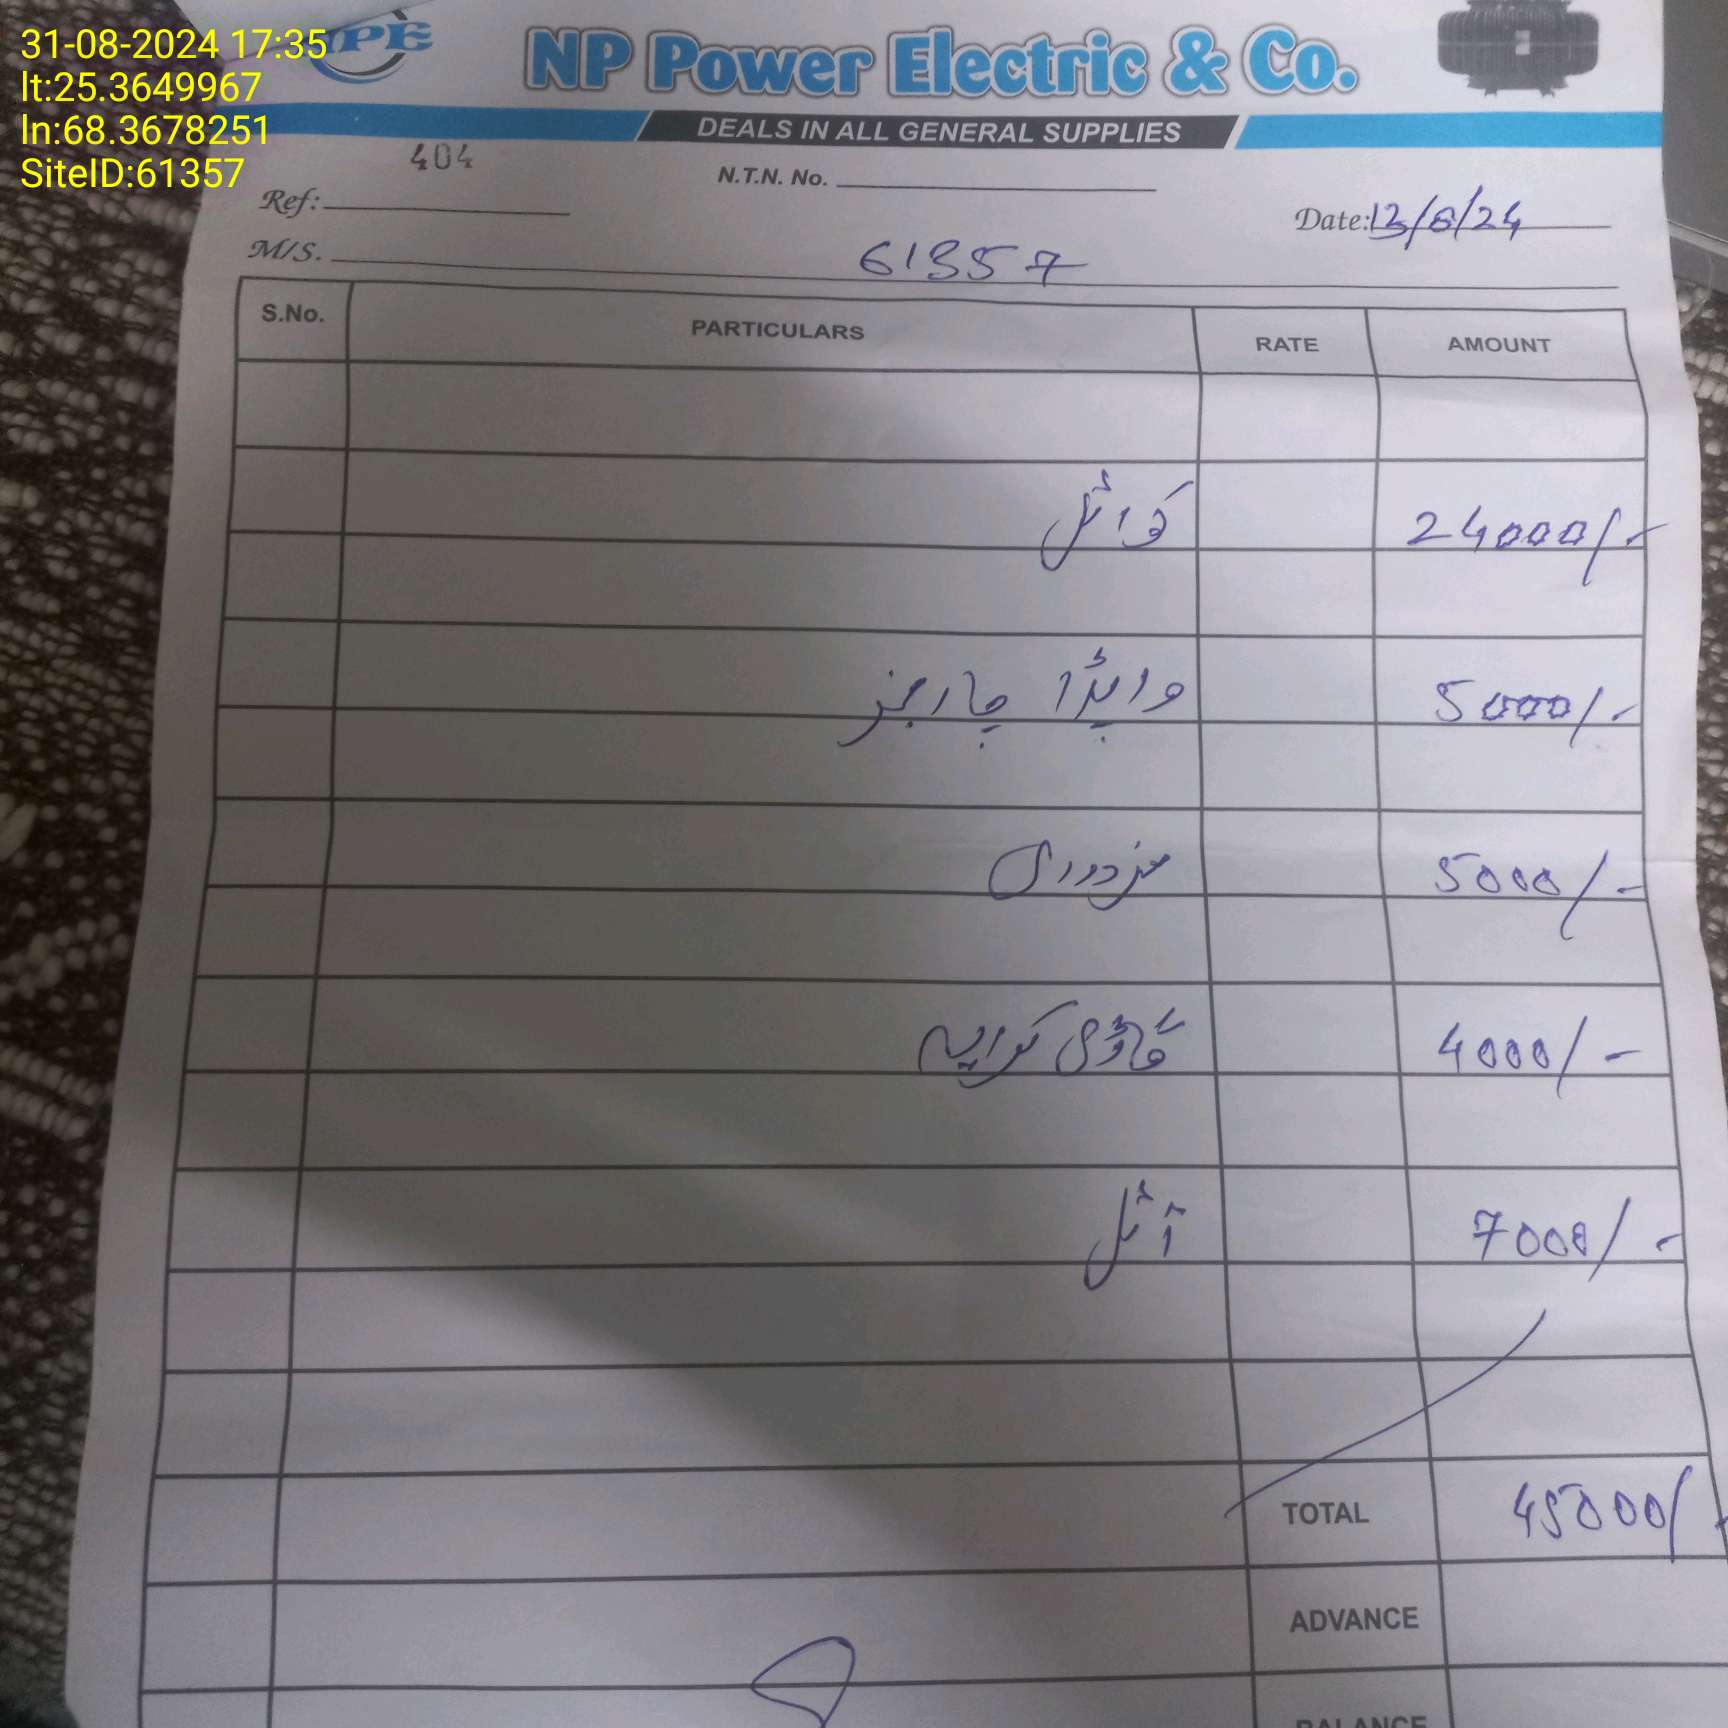 31-08-2024 17:35
lt:25.3649967
ln:68.3678251
SiteID:61357
NP Power Electric & Co.
DEALS IN ALL GENERAL SUPPLIES
404
N.T.N. No.
Ref:
Date: 13/6/24
M/S. 61357
S.No. PARTICULARS RATE AMOUNT
کوائل 24000/-
واپڈا چارجز 5000/-
مزدوری 5000/-
گاڑی کرایہ 4000/-
آئل 7000/-
TOTAL 45000/-
ADVANCE
BALANCE